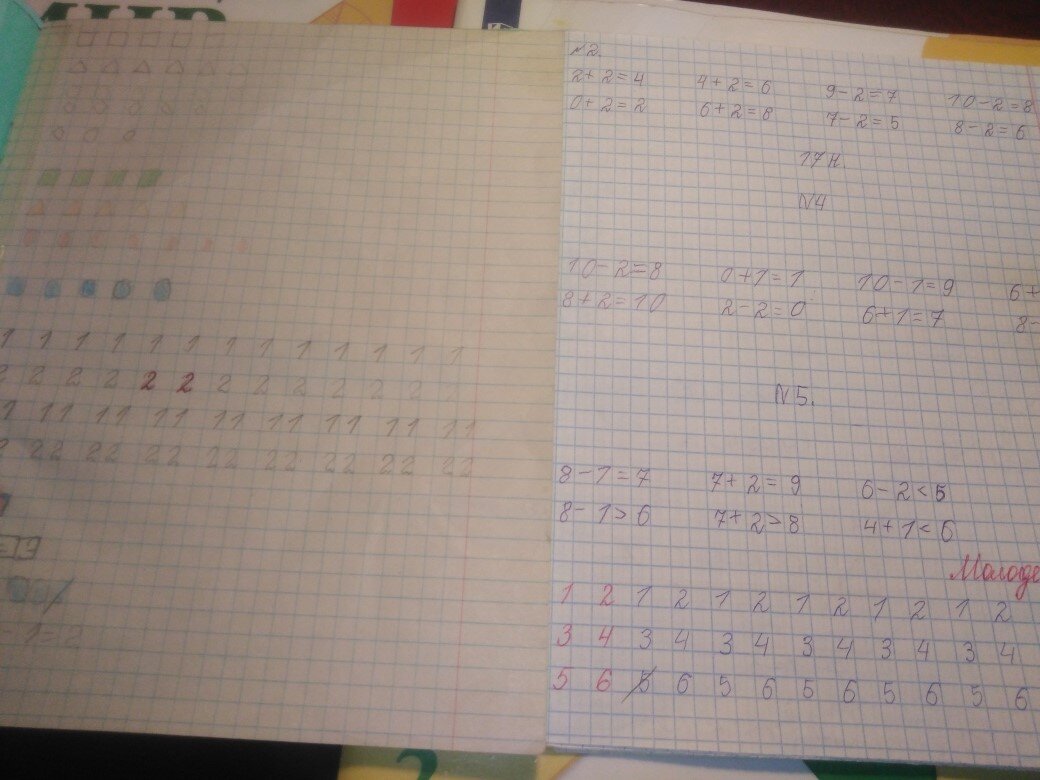 МИР
1 1 1 1 1 1 1 1 1 1 1 1 1
2 2 2 2 2 2 2 2 2 2 2 2
11 11 11 11 11 11 11 11
22 22 22 22 22 22 22 22
- 1 = 2
№2.
2+2=4 4+2=6 9-2=7 10-2=8
0+2=2 6+2=8 7-2=5 8-2=6
17 н.
№4
10-2=8 0+1=1 10-1=9 6+
8+2=10 2-2=0 6+1=7 8-
№5.
8-1=7 7+2=9 6-2<5
8-1>6 7+2>8 4+1<6
Молоде
1 2 1 2 1 2 1 2 1 2 1 2
3 4 3 4 3 4 3 4 3 4 3 4
5 6 5 6 5 6 5 6 5 6 5 6
2